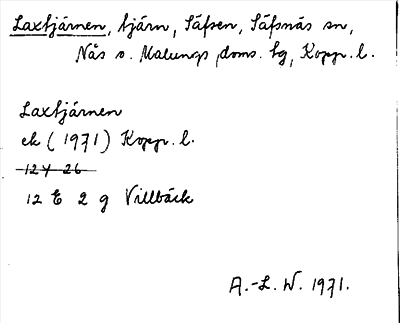 Laxtjärnen, tjärn, Säfsen, Säfsnäs sn,
Nås o. Malungs doms. tg, Kopp. l.
Laxtjärnen
ek (1971) Kopp. l.
12 Y 26
12 E 2 g Villbäck
A.-L. W. 1971.